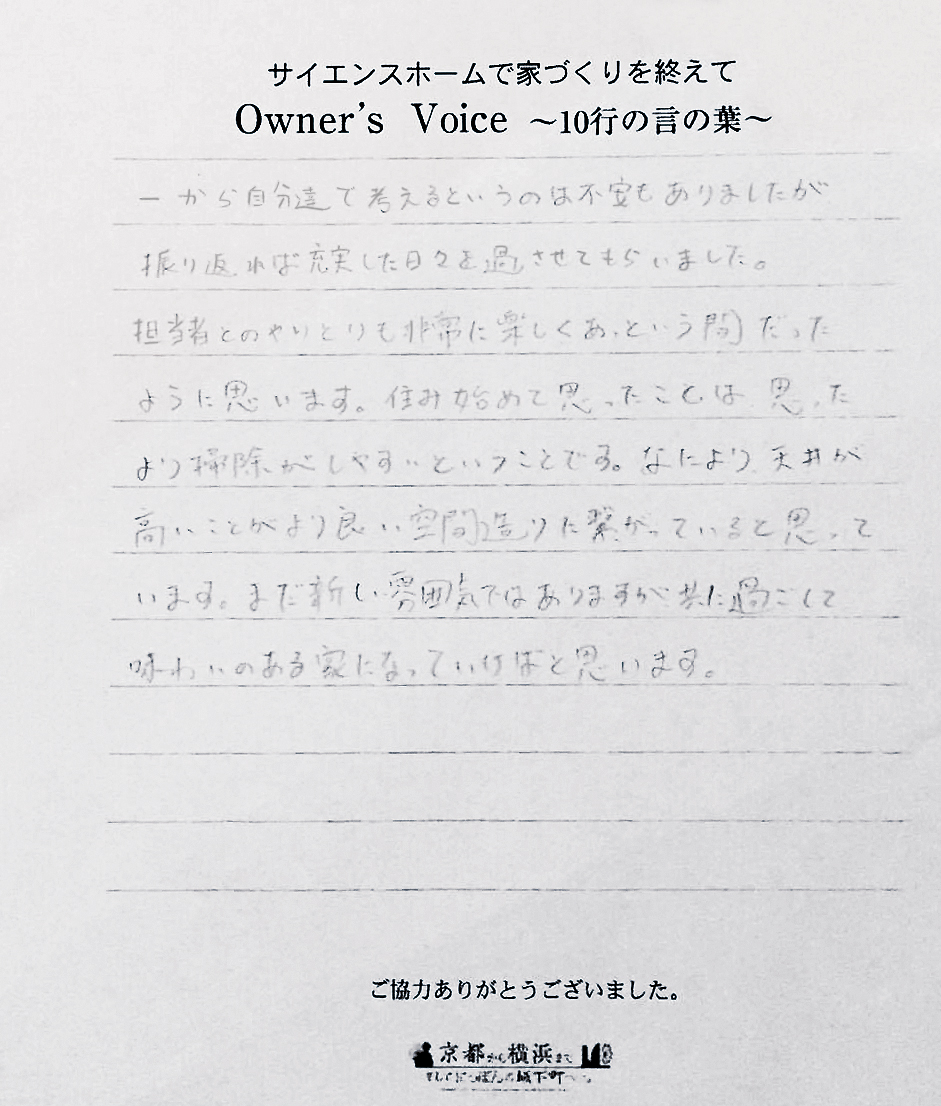 サイエンスホームで家づくりを終えて
Owner's Voice ～10行の言の葉～
一から自分達で考えるというのは不安もありましたが
振り返れば充実した日々を過させてもらいました。
担当者とのやりとりも非常に楽しくあっという間だった
ように思います。住み始めて思ったことは思った
より掃除がしやすいということです。なにより天井が
高いことがより良い空間造りに繋がっていると思って
います。まだ新しい雰囲気ではありますが共に過ごして
味わいのある家になっていければと思います。
ご協力ありがとうございました。
京都から横浜まで